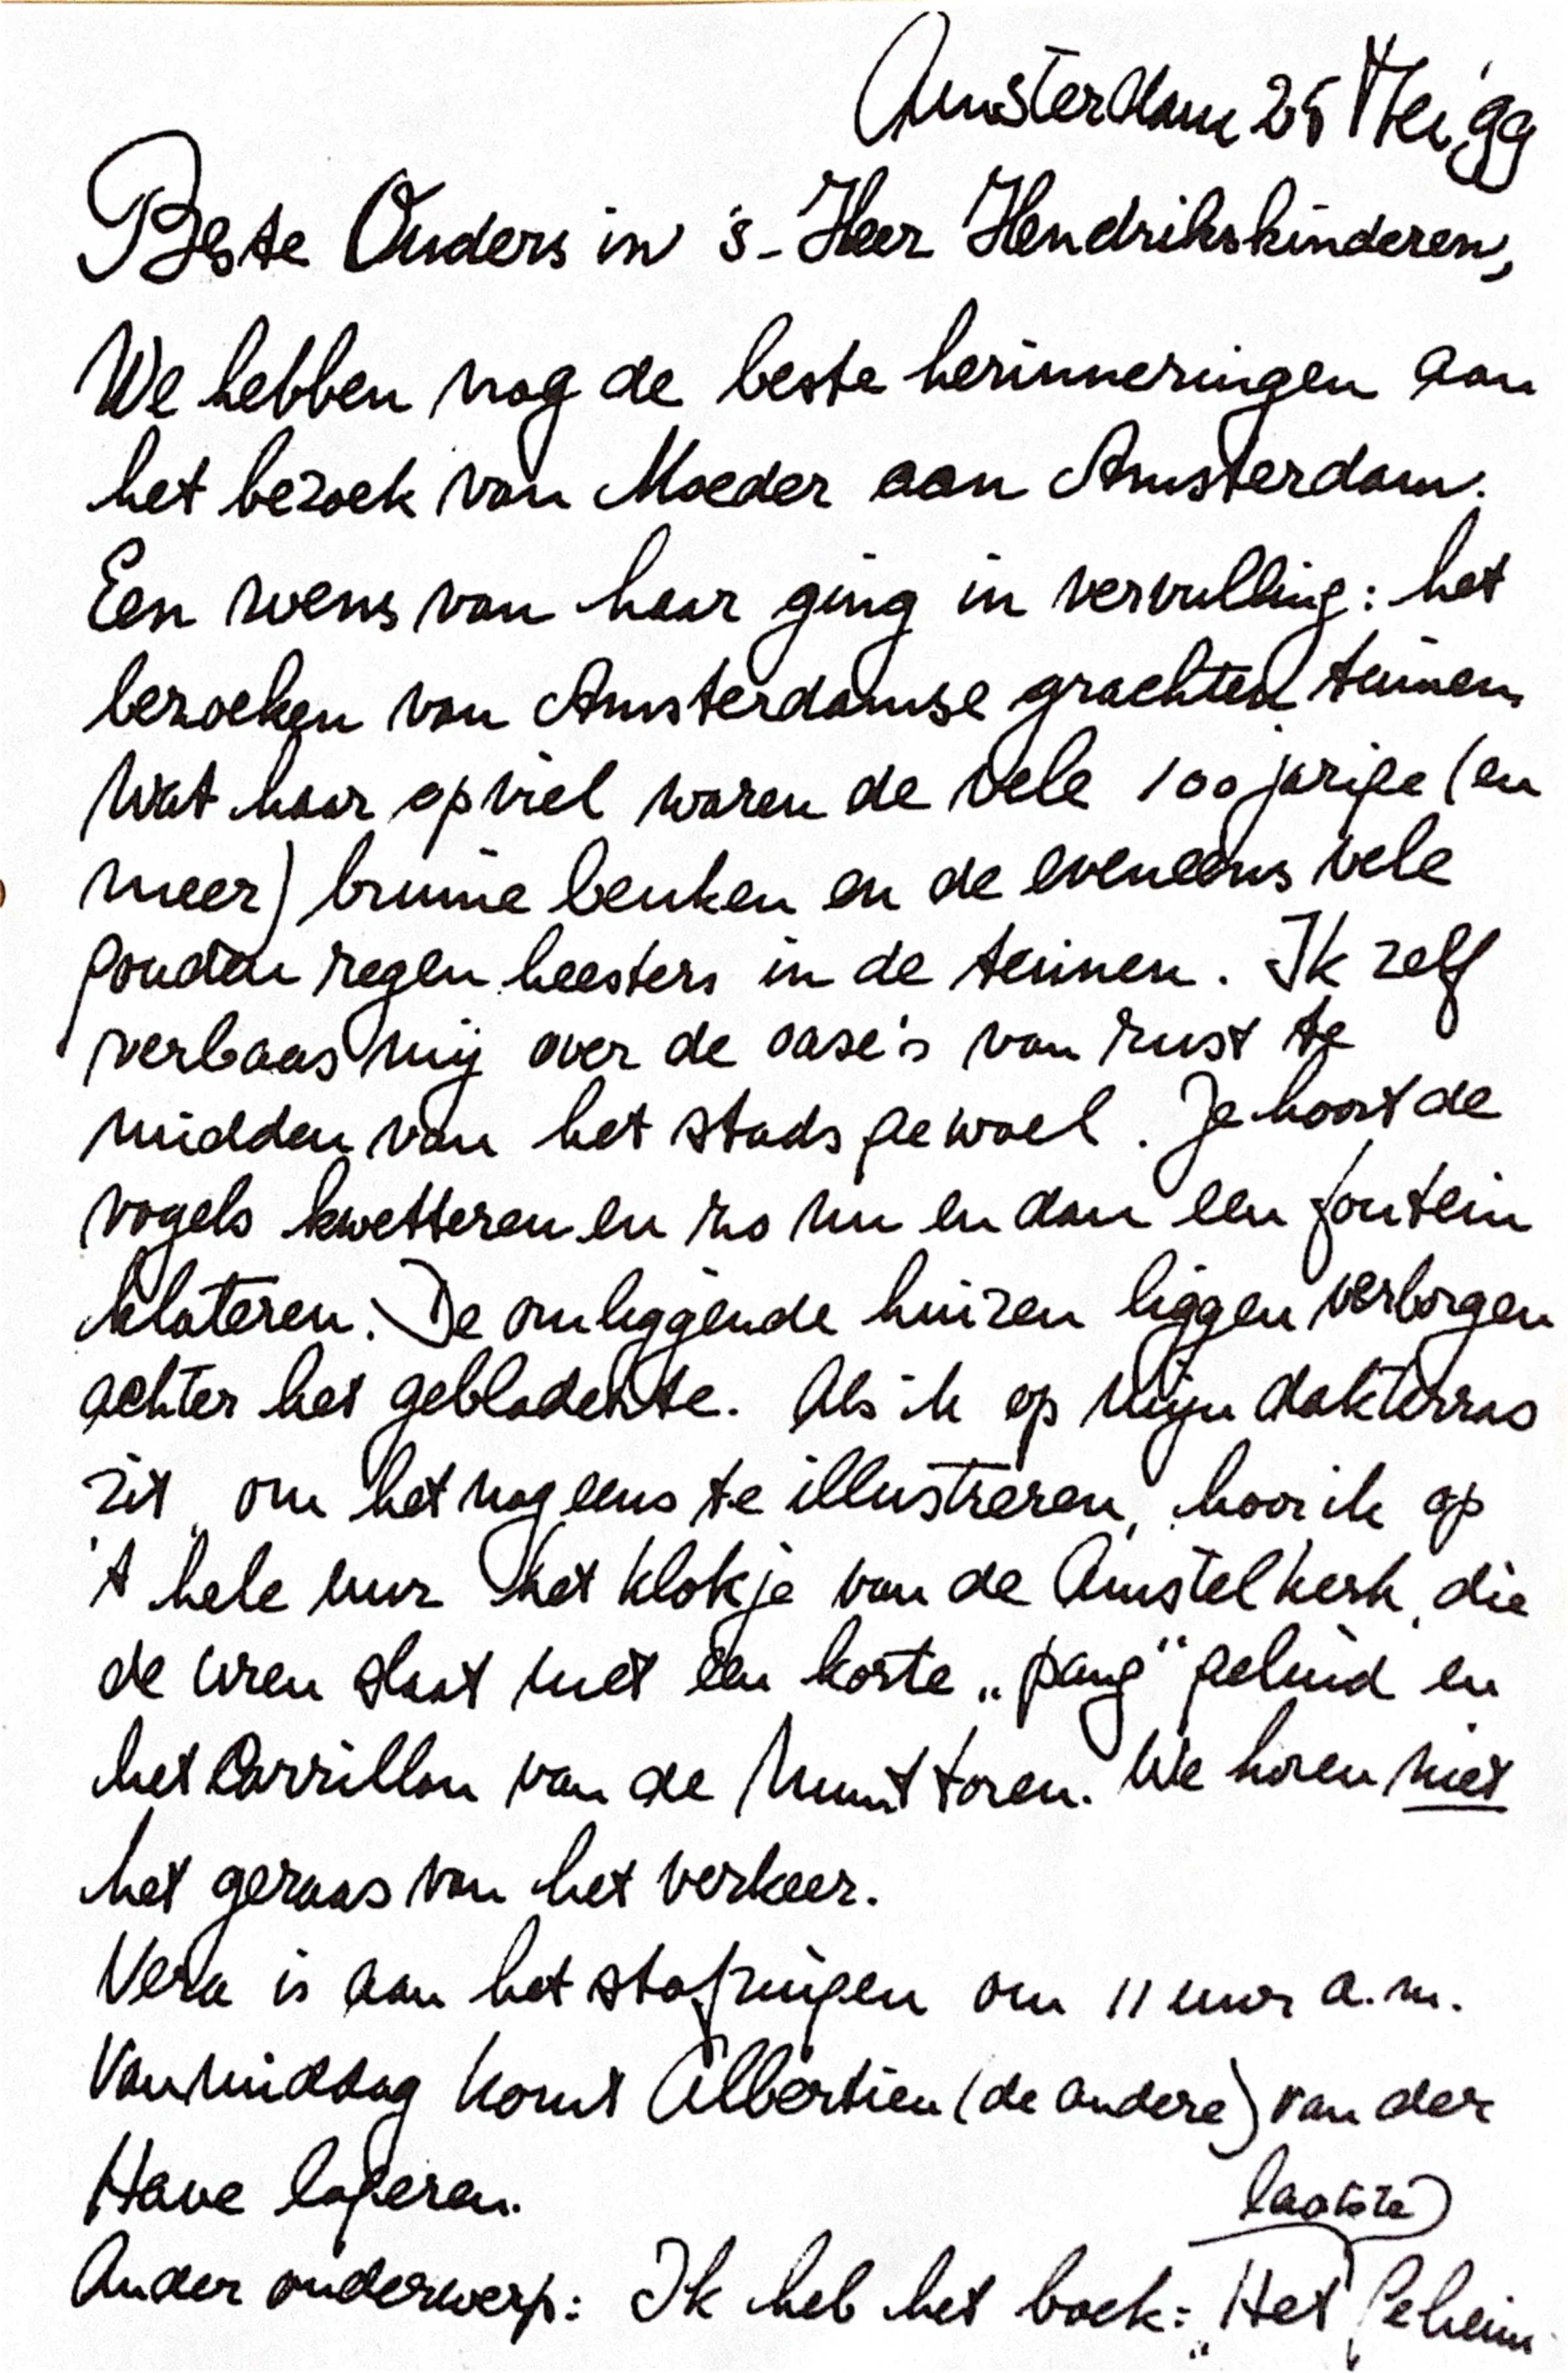 Amsterdam 25 Mei '99
Beste Ouders in 's-Heer Hendrikskinderen,
We hebben nog de beste herinneringen aan
het bezoek van Moeder aan Amsterdam.
Een wens van haar ging in vervulling: het
bezoeken van Amsterdamse grachten tuinen.
Wat haar opviel waren de vele 100 jarige (en
meer) bruine beuken en de eveneens vele
gouden regen heesters in de tuinen. Ik zelf
verbaas mij over de oase's van rust te
midden van het stads gewoel. Je hoort de
vogels kwetteren en zo nu en dan een fontein
klateren. De omliggende huizen liggen verborgen
achter het gebladerte. Als ik op mijn dakterras
zit, om het nog eens te illustreren, hoor ik op
't hele uur het klokje van de Amstelkerk, die
de uren slaat met een korte „pang" geluid en
het Carrillon van de Munttoren. We horen niet
het geraas van het verkeer.
Vera is aan het stofzuigen om 11 uur a.m.
Vanmiddag komt Albertien (de andere) van der
Have logeren.
laatste
Ander onderwerp: Ik heb het boek: „Het Geheim